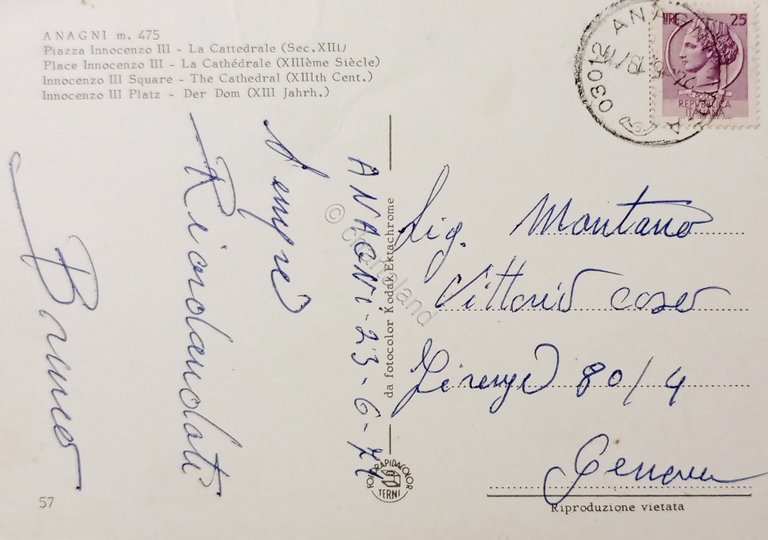 ANAGNI m. 475
Piazza Innocenzo III - La Cattedrale (Sec. XIII)
Place Innocenzo III - La Cathédrale (XIIIème Siècle)
Innocenzo III Square - The Cathedral (XIIIth Cent.)
Innocenzo III Platz - Der Dom (XIII Jahrh.)
03012 ANAGNI
LIRE 25
REPUBBLICA
ITALIANA
ANAGNI-23-6-71
Sempre
Ricordandoti
Bruno
da fotocolor Kodak Ektachrome
Sig. Montano
Vittorio
Firenze 80/4
Genova
FOTORAPIDACOLOR
TERNI
57
Riproduzione vietata